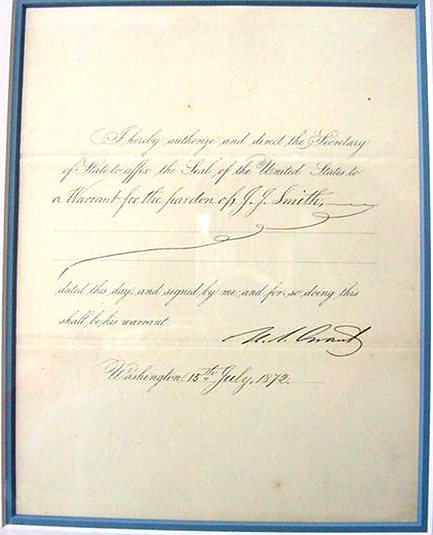 I hereby authorize and direct the Secretary
of State to affix the Seal of the United States to
a Warrant for the pardon of J. J. Smith,
dated this day, and signed by me and for so doing this
shall be his warrant.
U. S. Grant
Washington, 15th July, 1872.